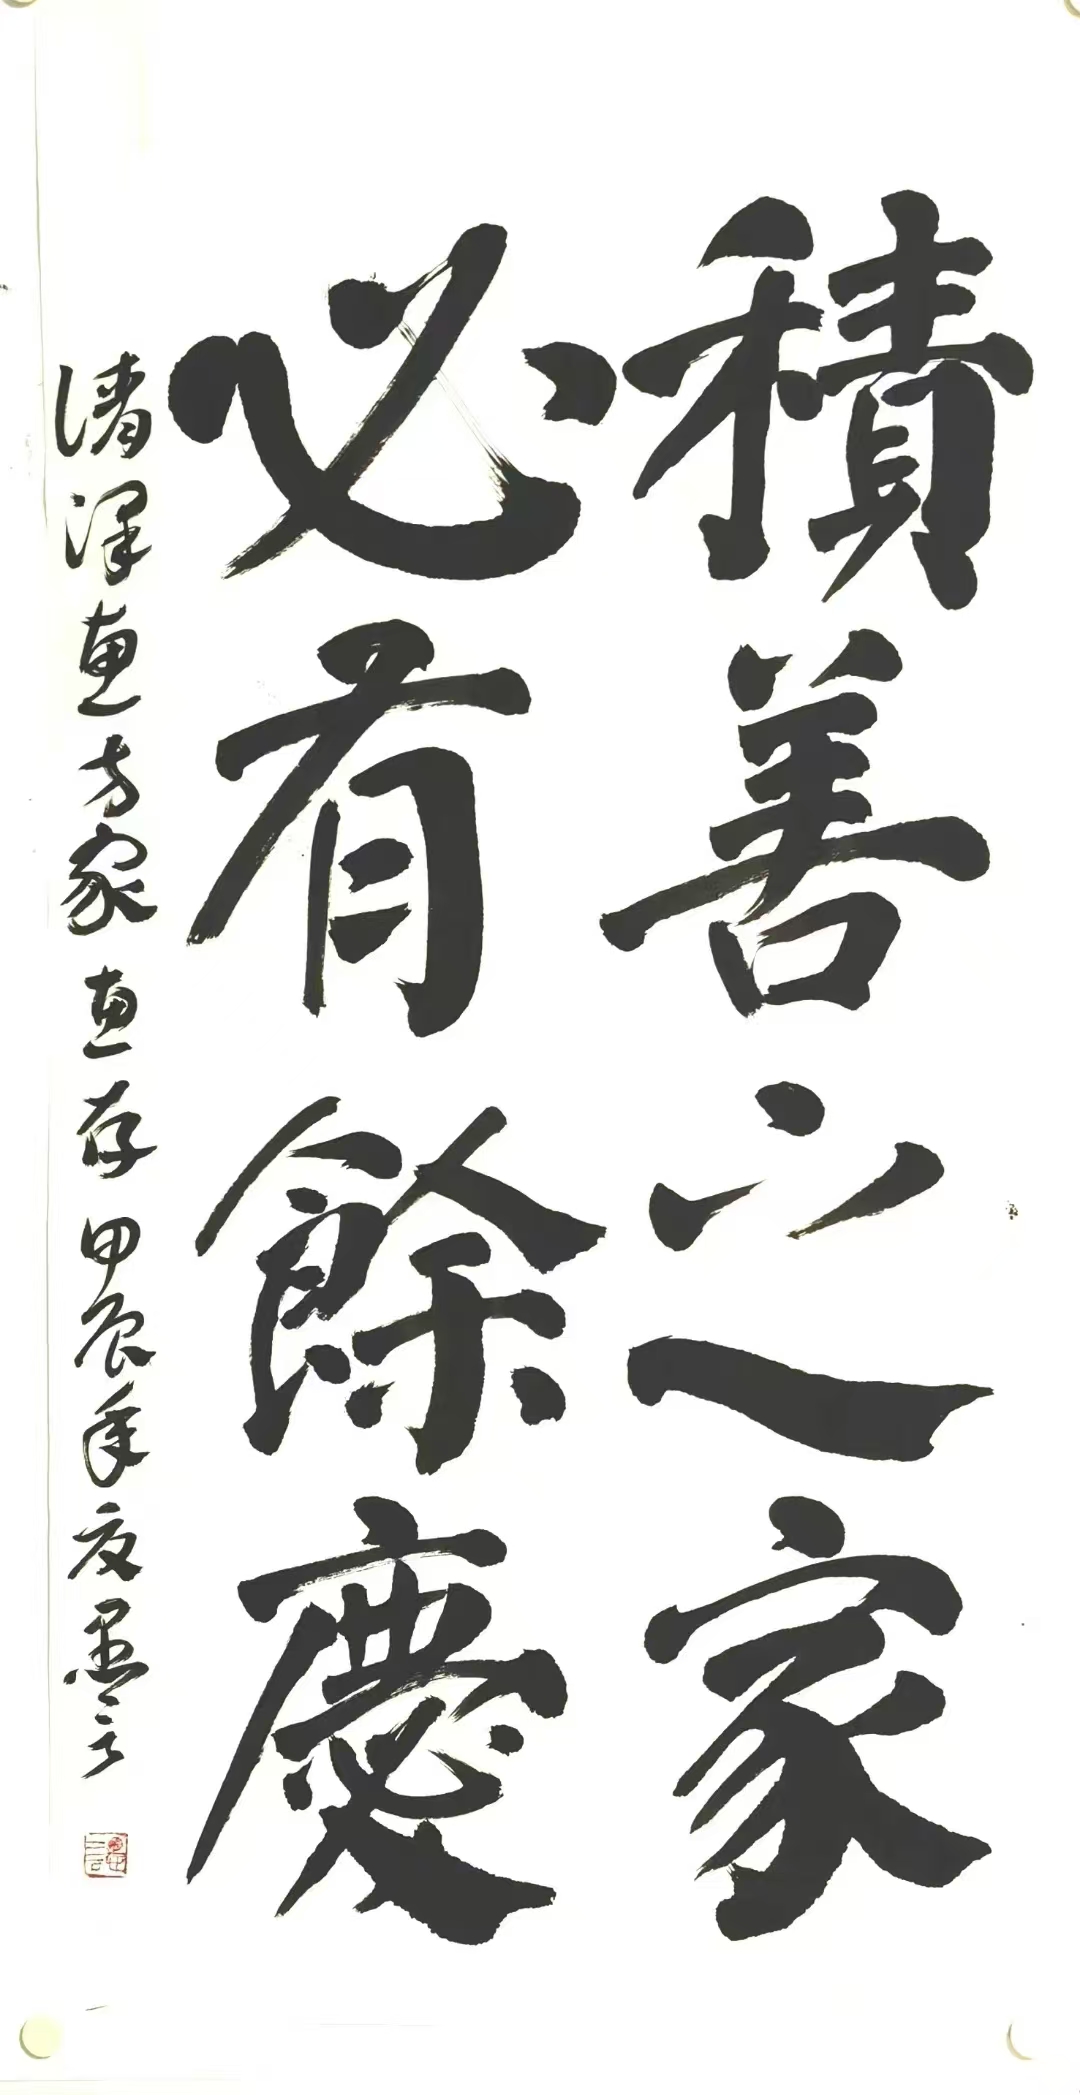 積善之家
必有餘慶
清澤惠方家惠存甲辰年夏墨言